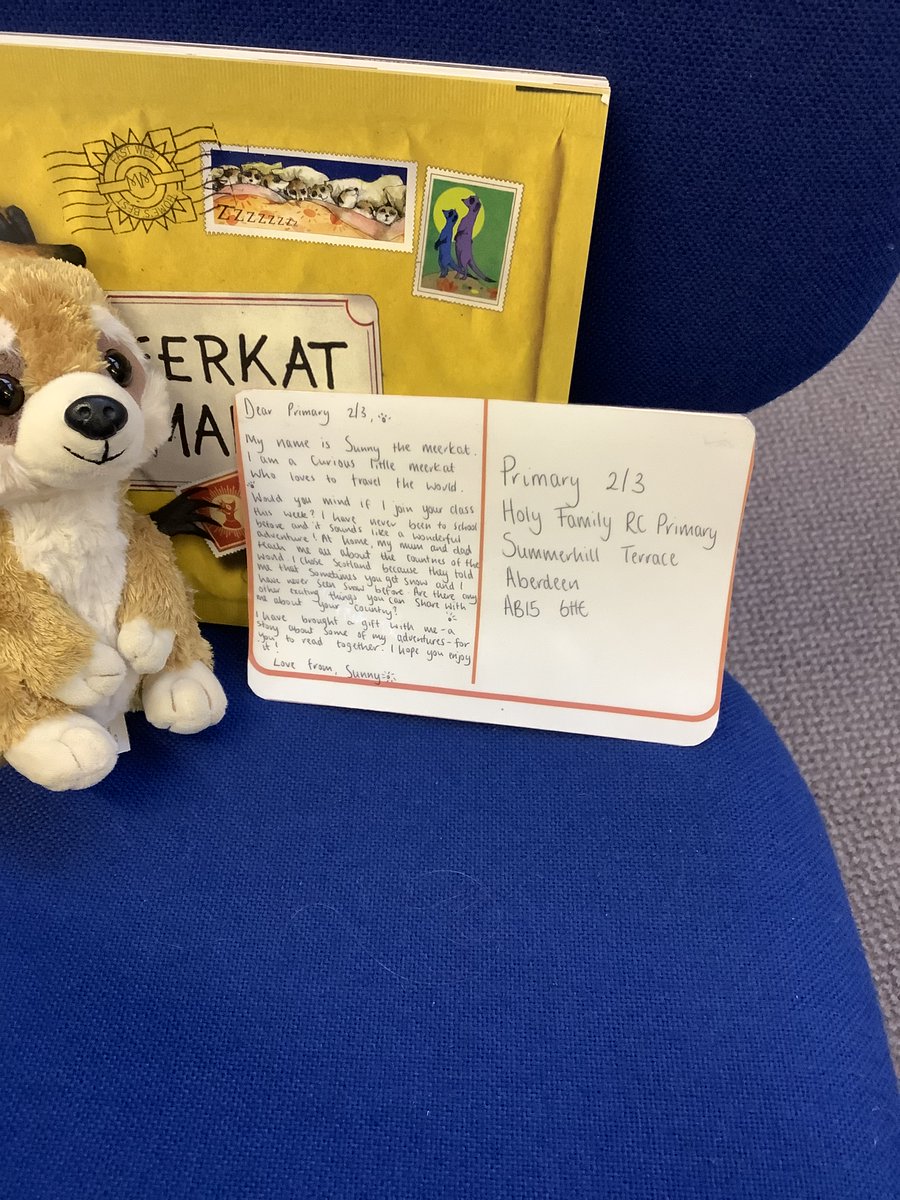 EAST WEST
MVM
HOME'S BEST
ZZZZzzzz
EERKAT
MAI
Dear Primary 2/3,
My name is Sunny the meerkat.
I am a curious little meerkat
who loves to travel the world.
Would you mind if I join your class
this week? I have never been to school
before and it sounds like a wonderful
adventure! At home, my mum and dad
teach me all about the countries of the
world. I chose Scotland because they told
me that sometimes you get snow and I
have never seen snow before. Are there any
other exciting things you can share with
me about your country?
I have brought a gift with me - a
story about some of my adventures - for
you to read together. I hope you enjoy
it!
Love from, Sunny
Primary 2/3
Holy Family RC Primary
Summerhill Terrace
Aberdeen
AB15 6HE